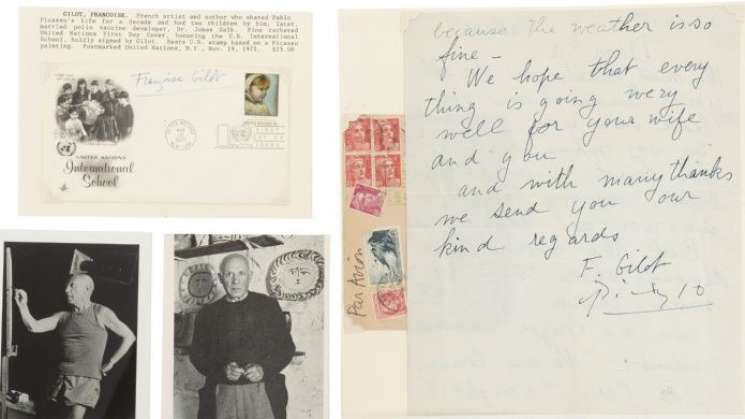 GILOT, FRANCOISE. French artist and author who shared Pablo
Picasso's life for a decade and had two children by him; later,
married polio vaccine developer, Dr. Jonas Salk. Fine cacheted
United Nations First Day Cover, honouring the U.N. International
School, boldly signed by Gilot. Bears U.N. stamp based on a Picasso
painting. Postmarked United Nations, N.Y., Nov. 19, 1971. $25.00
Françoise Gilot
UNITED NATIONS
International
School
FIRST
DAY OF
ISSUE
Par Avion
because the weather is so
fine -
We hope that every
thing is going very
well for your wife
and you
and with many thanks
we send you our
kind regards
F. Gilot